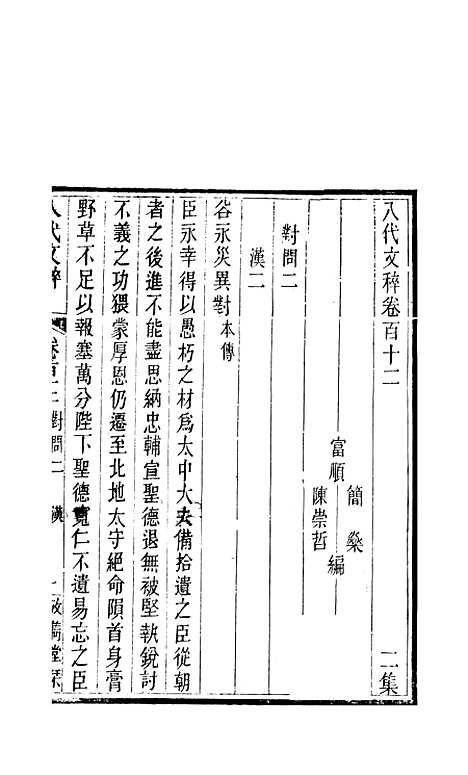 八代文稡卷百十二 二集
富順 簡燊 陳崇哲 編
對問二
漢二
谷永災異對 本傳
臣永幸得以愚朽之材爲太中大夫備拾遺之臣從朝
者之後進不能盡思納忠輔宣聖德退無被堅執銳討
不義之功猥蒙厚恩仍遷至北地太守絕命隕首身膏
野草不足以報塞萬分陛下聖德寬仁不遺易忘之臣
八代文稡 卷百十二 對問二 漢 一